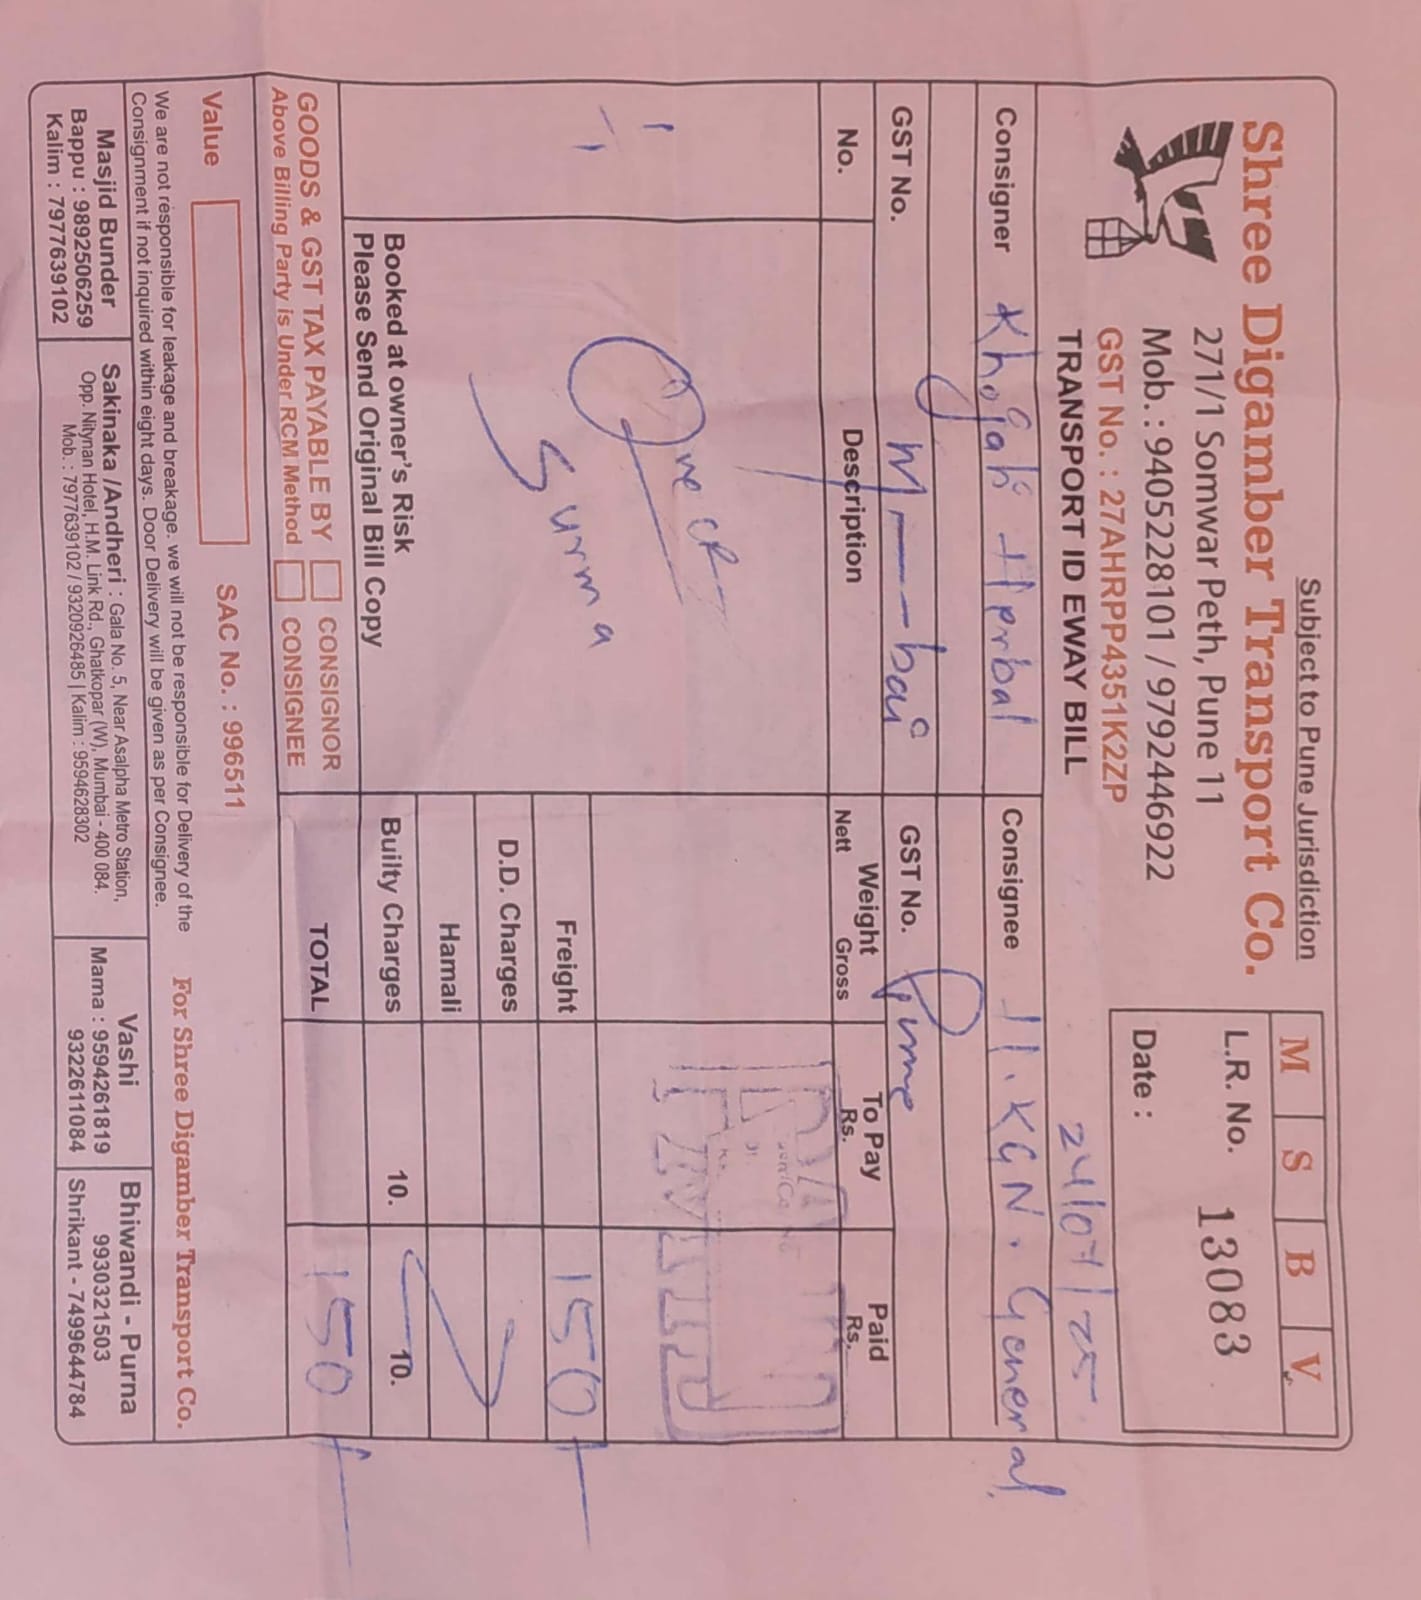 Subject to Pune Jurisdiction
M S B V
Shree Digamber Transport Co.
271/1 Somwar Peth, Pune 11
Mob. : 9405228101 / 9792446922
GST No. : 27AHRPP4351K2ZP
TRANSPORT ID EWAY BILL
L.R. No. 13083
Date :
24/07/25
Consigner Khojati Herbal
Consignee H.KGN. General
M-bai
Pune
GST No. GST No.
No. Description Weight To Pay Paid
Nett Gross Rs. Rs.
PAID
One
Surma
Freight 150/-
D.D. Charges
Hamali
Builty Charges 10. 10.
TOTAL 150/-
Booked at owner's Risk
Please Send Original Bill Copy
GOODS & GST TAX PAYABLE BY CONSIGNOR
Above Billing Party is Under RCM Method CONSIGNEE
Value SAC No. : 996511
We are not responsible for leakage and breakage. we will not be responsible for Delivery of the
Consignment if not inquired within eight days. Door Delivery will be given as per Consignee.
For Shree Digamber Transport Co.
Masjid Bunder
Bappu : 9892506259
Kalim : 7977639102
Sakinaka /Andheri : Gala No. 5, Near Asalpha Metro Station,
Opp. Nitynan Hotel, H.M. Link Rd., Ghatkopar (W), Mumbai - 400 084.
Mob. : 7977639102 / 9320926485 | Kalim : 9594628302
Vashi
Mama : 9594261819
9322611084
Bhiwandi - Purna
9930321503
Shrikant - 7499644784